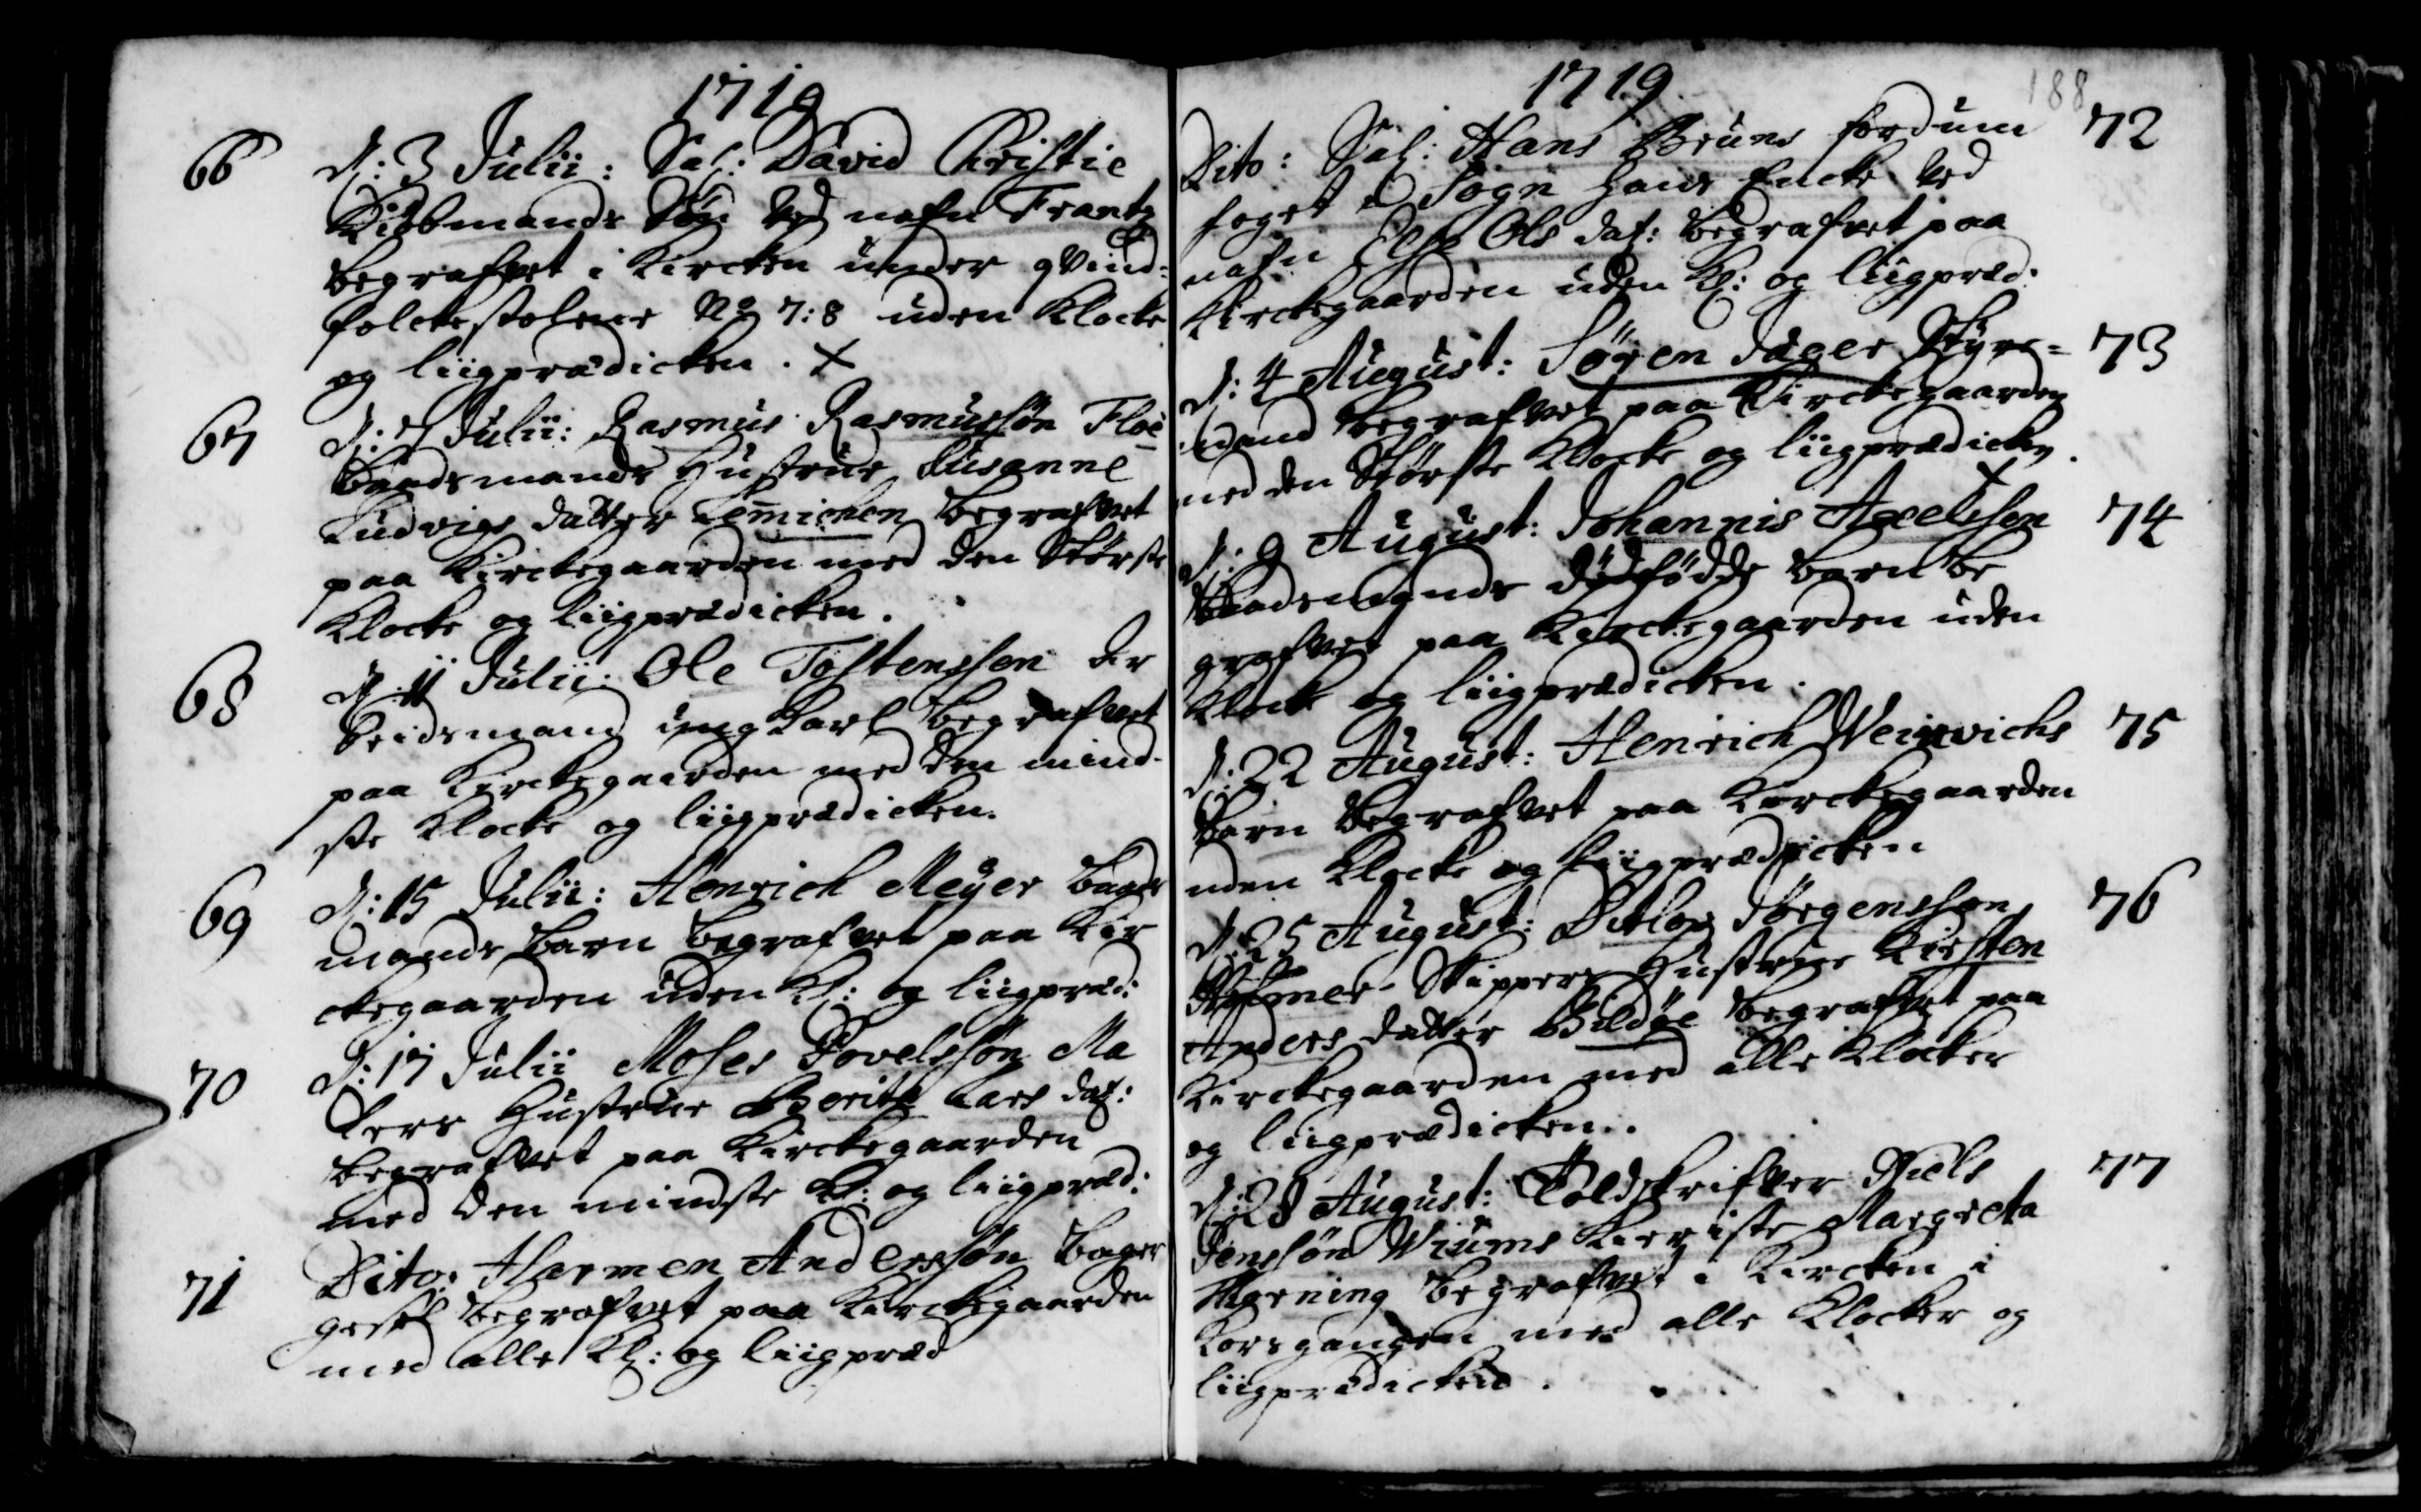 1719
66
d: 3 Julii: Sal: David Christie
Kiöbmands Søn ved nafn Frantz
begrafvet i Kircken under qvind-
folckestolene No 7:8 uden Klocke
og liigprædicken. X
67
d: 7 Julii: Rasmus Rasmussøn Floe
Baadsmands Hustrue Susanne
Ludvigs datter Lemichen begrafvet
paa Kirckegaarden med den Største
Klocke og liigprædicken.
68
d: 11 Julii: Ole Tostenssøn der
Seidsmand ungkarl begrafvet
paa Kirckegaarden med den mind-
ste Klocke og liigprædicken.
69
d: 15 Julii: Henrich Meyer
mands barn begrafvet paa Kir
ckegaarden uden Kl: og liigpræd:
70
d: 17 Julii Moses Povelssøn Ma
lers Hustrue Berite Lars dat:
begrafvet paa Kirckegaarden
med den mindste Kl: og liigpræd:
71
Dito: Harmen Anderssøn Bager
gesel begrafvet paa Kirckegaarden
med alle Kl: og liigpræd
1719
188
Dito: Sal: Hans Bruns fordum
72
foget i Sogn hans Encke ved
nafn Else Ols dat: begrafvet paa
Kirckegaarden uden Kl: og liigpræd:
d: 4 August: Søren Jæger Styre-
73
mand begrafvet paa Kirckegaarden
med den Største Klocke og liigprædicken.
d: 9 August: Johannis Axelsson
74
Baadsmands dødfødde barn be
grafvet paa Kirckegaarden uden
Klocke og liigprædicken.
d: 22 August: Henrich
75
barn begrafvet paa Kirckegaarden
uden Klocke og liigprædicken
d: 25 August: Ditlov Jørgenssøn
76
Skippers Hustrue Kirsten
Anders datter Bildøe begrafvet paa
Kirckegaarden med alle Klocker
og liigprædicken.
d: 28 August: Toldskrifver Niels
77
Jenssøn Wiums Kieriste Margreta
begrafvet i Kircken i
Korsgangen med alle Klocker og
liigprædicken.